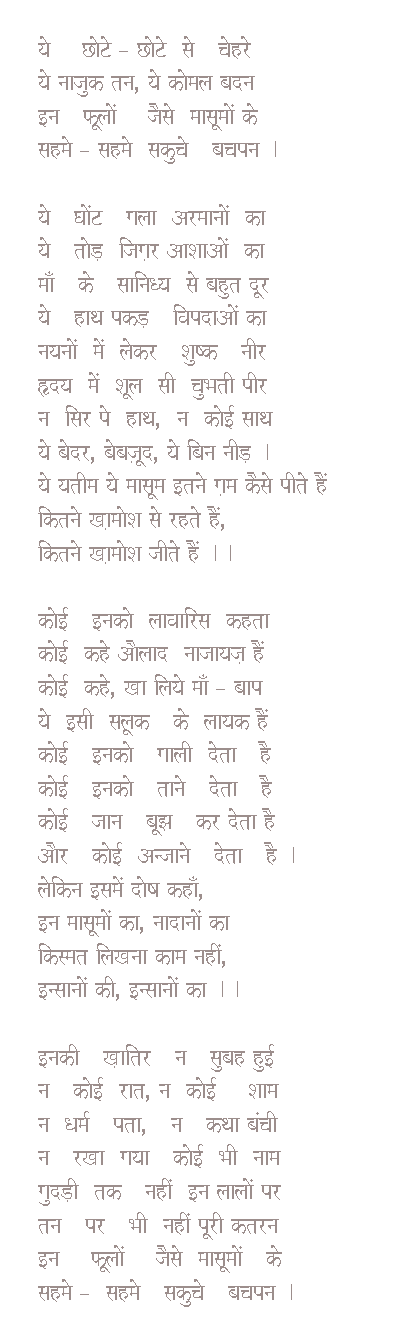 ये छोटे - छोटे से चेहरे
ये नाजुक तन, ये कोमल बदन
इन फूलों जैसे मासूमों के
सहमे - सहमे सकुचे बचपन |
ये घोंट गला अरमानों का
ये तोड़ जिग़र आशाओं का
माँ के सानिध्य से बहुत दूर
ये हाथ पकड़ विपदाओं का
नयनों में लेकर शुष्क नीर
हृदय में शूल सी चुभती पीर
न सिर पे हाथ, न कोई साथ
ये बेदर, बेबज़ूद, ये बिन नीड़ |
ये यतीम ये मासूम इतने ग़म कैसे पीते हैं
कितने ख़ामोश से रहते हैं,
कितने ख़ामोश जीते हैं ||
कोई इनको लावारिस कहता
कोई कहे औलाद नाजायज़ हैं
कोई कहे, खा लिये माँ - बाप
ये इसी सलूक के लायक हैं
कोई इनको गाली देता है
कोई इनको ताने देता है
कोई जान बूझ कर देता है
और कोई अन्जाने देता है |
लेकिन इसमें दोष कहाँ,
इन मासूमों का, नादानों का
किस्मत लिखना काम नहीं,
इन्सानों की, इन्सानों का ||
इनकी ख़ातिर न सुबह हुई
न कोई रात, न कोई शाम
न धर्म पता, न कथा बंची
न रखा गया कोई भी नाम
गुदड़ी तक नहीं इन लालों पर
तन पर भी नहीं पूरी कतरन
इन फूलों जैसे मासूमों के
सहमे - सहमे सकुचे बचपन |